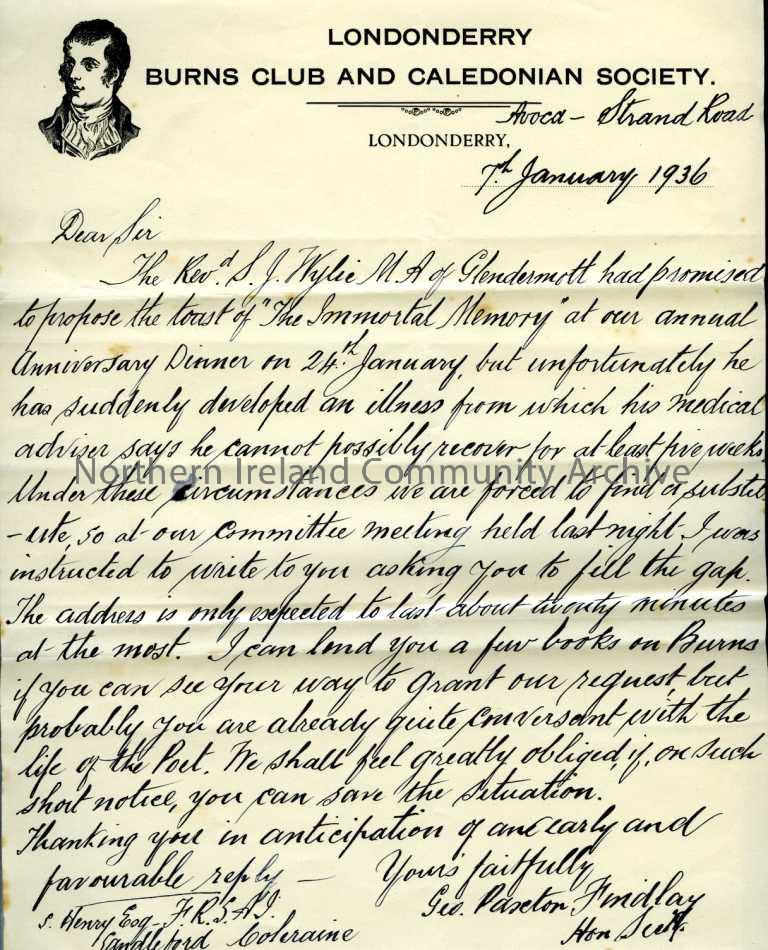 LONDONDERRY
BURNS CLUB AND CALEDONIAN SOCIETY.
Avoca - Strand Road
LONDONDERRY,
7th January 1936
Dear Sir
The Revd. S. J. Wylie M A of Glendermott had promised
to propose the toast of "The Immortal Memory" at our annual
Anniversary Dinner on 24th January, but unfortunately he
has suddenly developed an illness from which his medical
adviser says he cannot possibly recover for at least five weeks.
Northern Ireland Community Archive
Under these circumstances we are forced to find a substit
-ute, so at our committee meeting held last night I was
instructed to write to you asking you to fill the gap.
The address is only expected to last about twenty minutes
at the most. I can lend you a few books on Burns
if you can see your way to grant our request, but
probably you are already quite conversant with the
life of the Poet. We shall feel greatly obliged, if, on such
short notice, you can save the situation.
Thanking you in anticipation of an early and
favourable reply -
Yours faithfully
Geo. Paxton Findlay
Hon Secy.
S. Henry Esq F.R.S.A.I.
Sandleford Coleraine